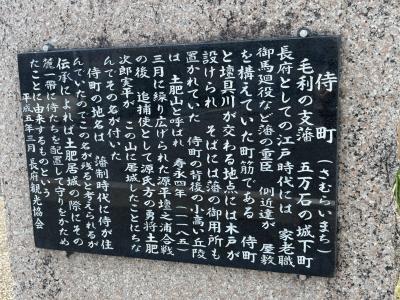 侍町（さむらいまち）
毛利の支藩　五万石の城下町
長府としての江戸時代には　家老職
御馬廻役など藩の重臣　側近達が　屋敷
を構えていた町筋である　侍町
と壇具川が交わる地点には木戸が
設けられ　そばには藩の御用所も
置かれていた　侍町の背後の小高い丘陵
は　土肥山と呼ばれ　寿永四年（一一八五）
三月に繰り広げられた源平壇之浦合戦
の後　追捕使として源氏方の勇将土肥
次郎実平が　この山に居城したことにちな
んでその名が付いた
侍町の地名は　藩制時代に侍が住
んでいたのでこの名が残ると考えられるが
伝承によれば　土肥居城の際にその
麓一帯に侍たちを配置して守りをかため
たことに由来するものという
平成五年三月　長府観光協会